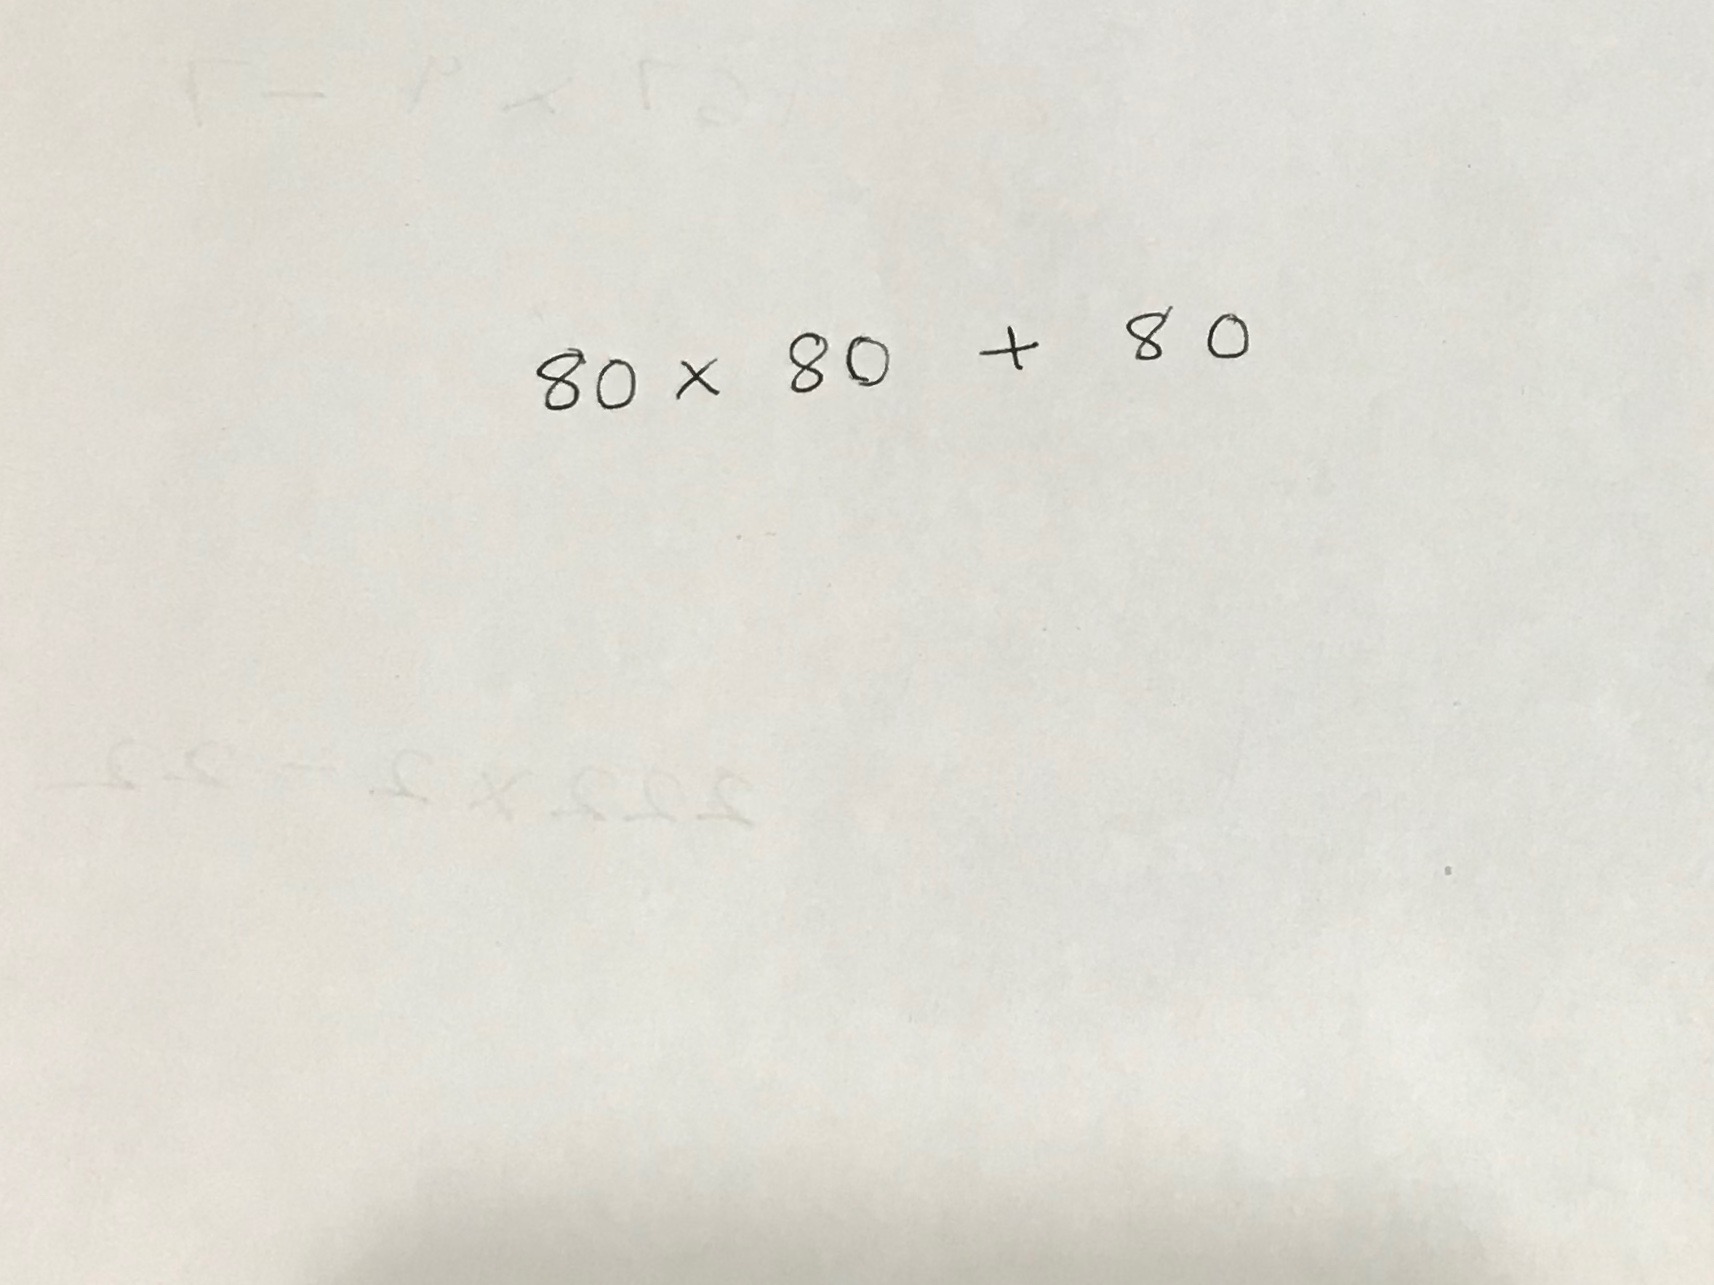 80 × 80 + 80